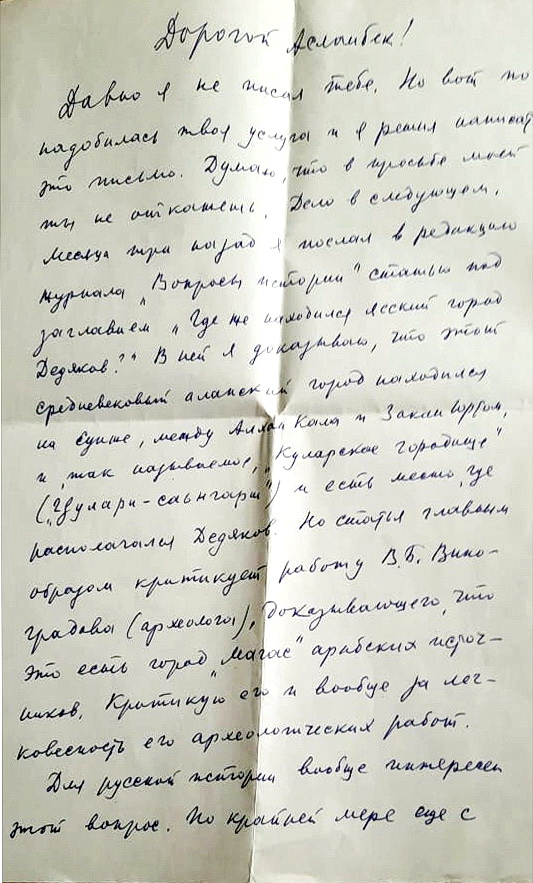 Дорогой Асламбек!
Давно я не писал тебе. Но вот по
надобилась твоя услуга и я решил написать
это письмо. Думаю, что в просьбе моей
ты не откажешь. Дело в следующем.
Месяца три назад я послал в редакцию
журнала „Вопросы истории" статью под
заглавием „Где же находился ясский город
Дедяков?" В ней я доказываю, что этот
средневековый аланский город находился
на Сунже, между Алхан Кала и Закан Юртом,
и, так называемое, „Куларское городище"
(„Цулари-савнгарт") и есть место, где
располагался Дедяков. Но статья главным
образом критикует работу В.Б. Вино-
градова (археолога), доказывающего, что
это есть город „Магас" арабских источ-
ников. Критикую его и вообще за лег-
ковесность его археологических работ.
Для русской истории вообще интересен
этот вопрос. По крайней мере еще с